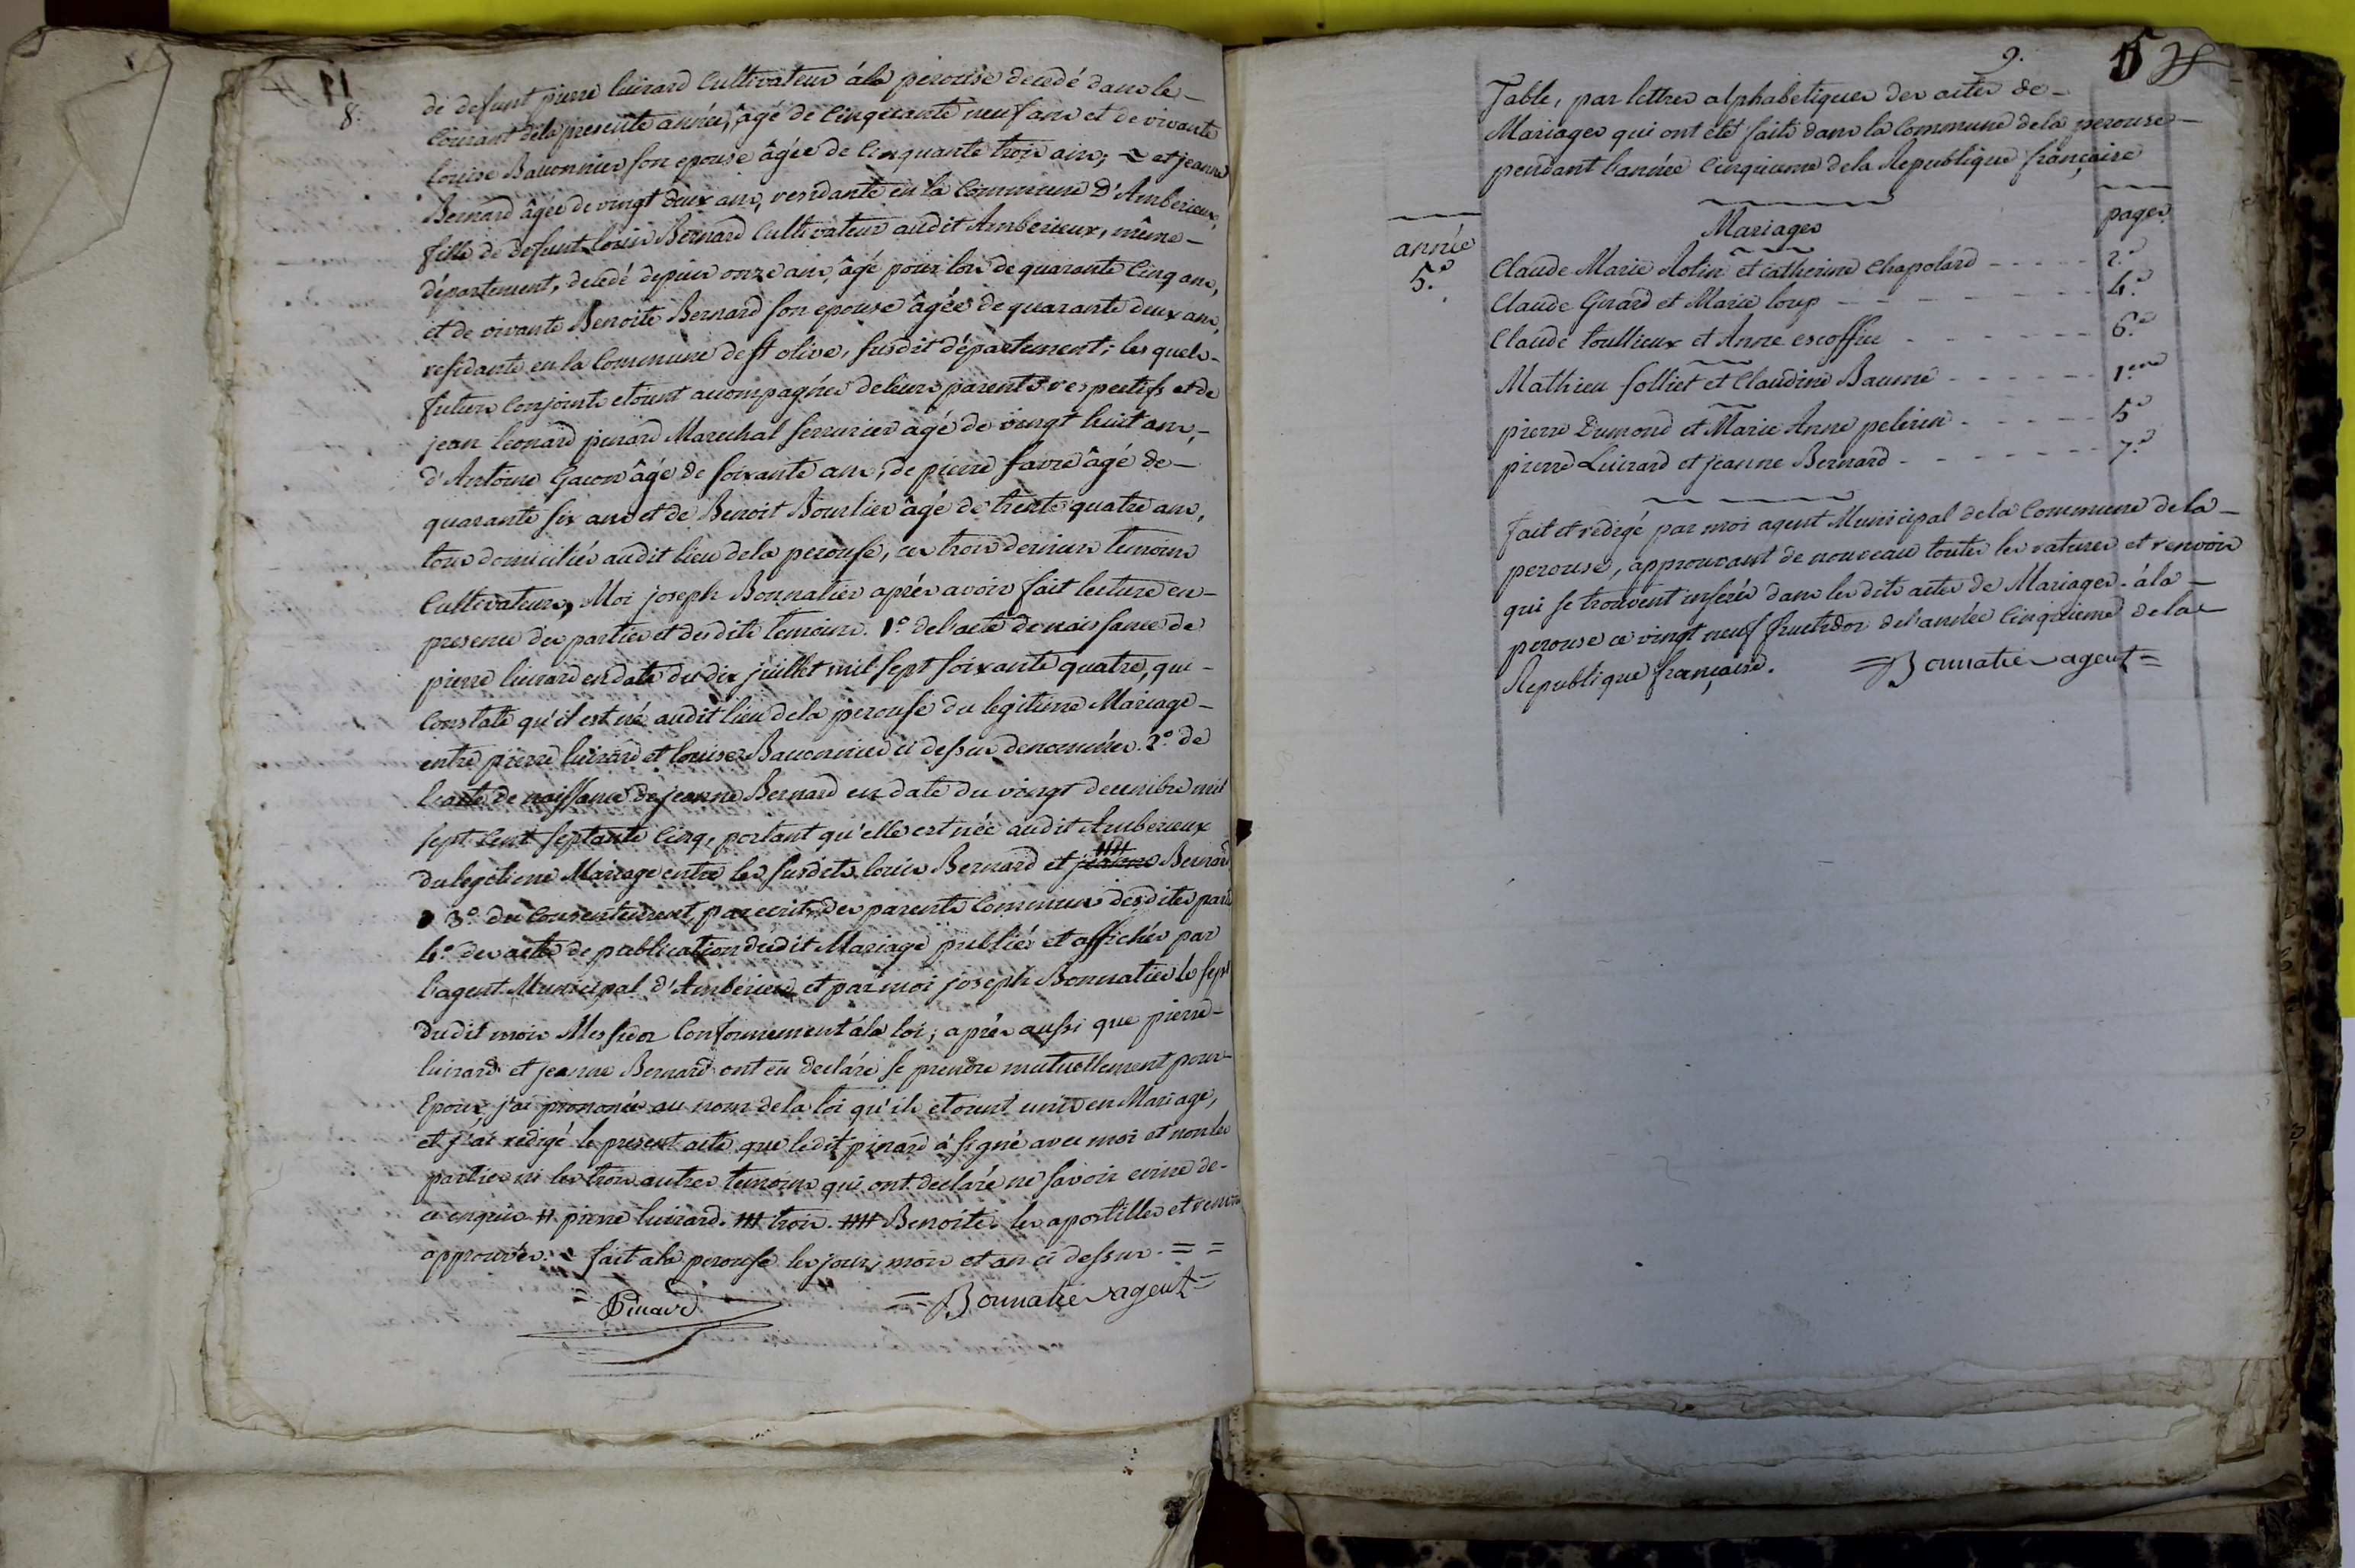 8.
de defunt pierre luirard Cultivateur à la perouse decedé dans le
Courant de la presente année, âgé de Cinquante neuf ans et de vivante
louise Bauonnier son epouse âgée de Cinquante trois ans; et jeanne
Bernard âgée de vingt deux ans, residante en la Commune D'Amberieux,
fille de defunt louis Bernard Cultivateur audit Amberieux, même
département, decedé depuis onze ans, âgé pour lors de quarante Cinq ans,
et de vivante Benoite Bernard son epouse âgée de quarante deux ans,
residante en la Commune de st olive, susdit département; les quels
futurs Conjoints etoient accompagnés de leurs parents respectifs et de
jean leonard pinard Marechal serrurier âgé de vingt huit ans,
d'Antoine Gacon âgé de soixante ans, de pierre favre âgé de
quarante six ans et de Benoit Bourlier âgé de trente quatre ans,
tous domiciliés audit lieu de la perouse, ces trois derniers temoins
Cultivateurs, Moi joseph Bonnatier après avoir fait lecture en
presence des parties et desdits temoins. 1.° de l'acte de naissance de
pierre luirard en date du dix juillet mil sept soixante quatre, qui
Constate qu'il est né audit lieu de la perouse du legitime Mariage
entre pierre luirard et louise Bauonnier ci dessus denommés. 2.° de
l'acte de naissance de jeanne Bernard en date du vingt decembre mil
sept Cent septante Cinq, portant qu'elle est née audit Amberieux
du legitime Mariage entre les susdits louis Bernard et jeanne Bernard
3.° du Consentement par ecrit des parents Communs desdites parti
4.° des actes de publication dudit Mariage publiés et affichés par
l'agent Municipal d'Amberieux et par moi joseph Bonnatier le sept
dudit mois Messidor Conformement à la loi; après aussi que pierre
luirard et jeanne Bernard ont eu declaré se prendre mutuellement pour
Epoux, j'ai prononcé au nom de la loi qu'ils etoient unis en Mariage,
et j'ai redigé le present acte que ledit pinard à signé avec moi et non les
parties ni les trois autres temoins qui ont declaré ne savoir ecrire de
ce enquis # pierre luirard. trois. Benoite. les apostilles et renvois
approuvés. fait a la perouse les jour, mois et an ci dessus. = =
Pinard = Bonnatier agent =
9. 5
Table, par lettres alphabetiques des actes de
Mariages qui ont été faits dans la Commune de la perouse
pendant l'année Cinquieme de la Republique française
année Mariages pages
5.e Claude Marie Rolin et Catherine Chapolard - - - - - 2.e
Claude Girard et Marie loup - - - - - - - - 4.e
Claude toullieux et Anne escoffier - - - - - - 6.e
Mathieu folliet et Claudine Baume - - - - - - 1.ere
pierre Dumond et Marie Anne pelerin - - - - - 5.e
pierre Luirard et jeanne Bernard - - - - - - - 7.e
fait et redigé par moi agent Municipal de la Commune de la
perouse, approuvant de nouveau toutes les ratures et renvois
qui se trouvent inserés dans les dits actes de Mariages. à la
perouse ce vingt neuf fructidor de l'année Cinquieme de la
Republique française. = Bonnatier agent =